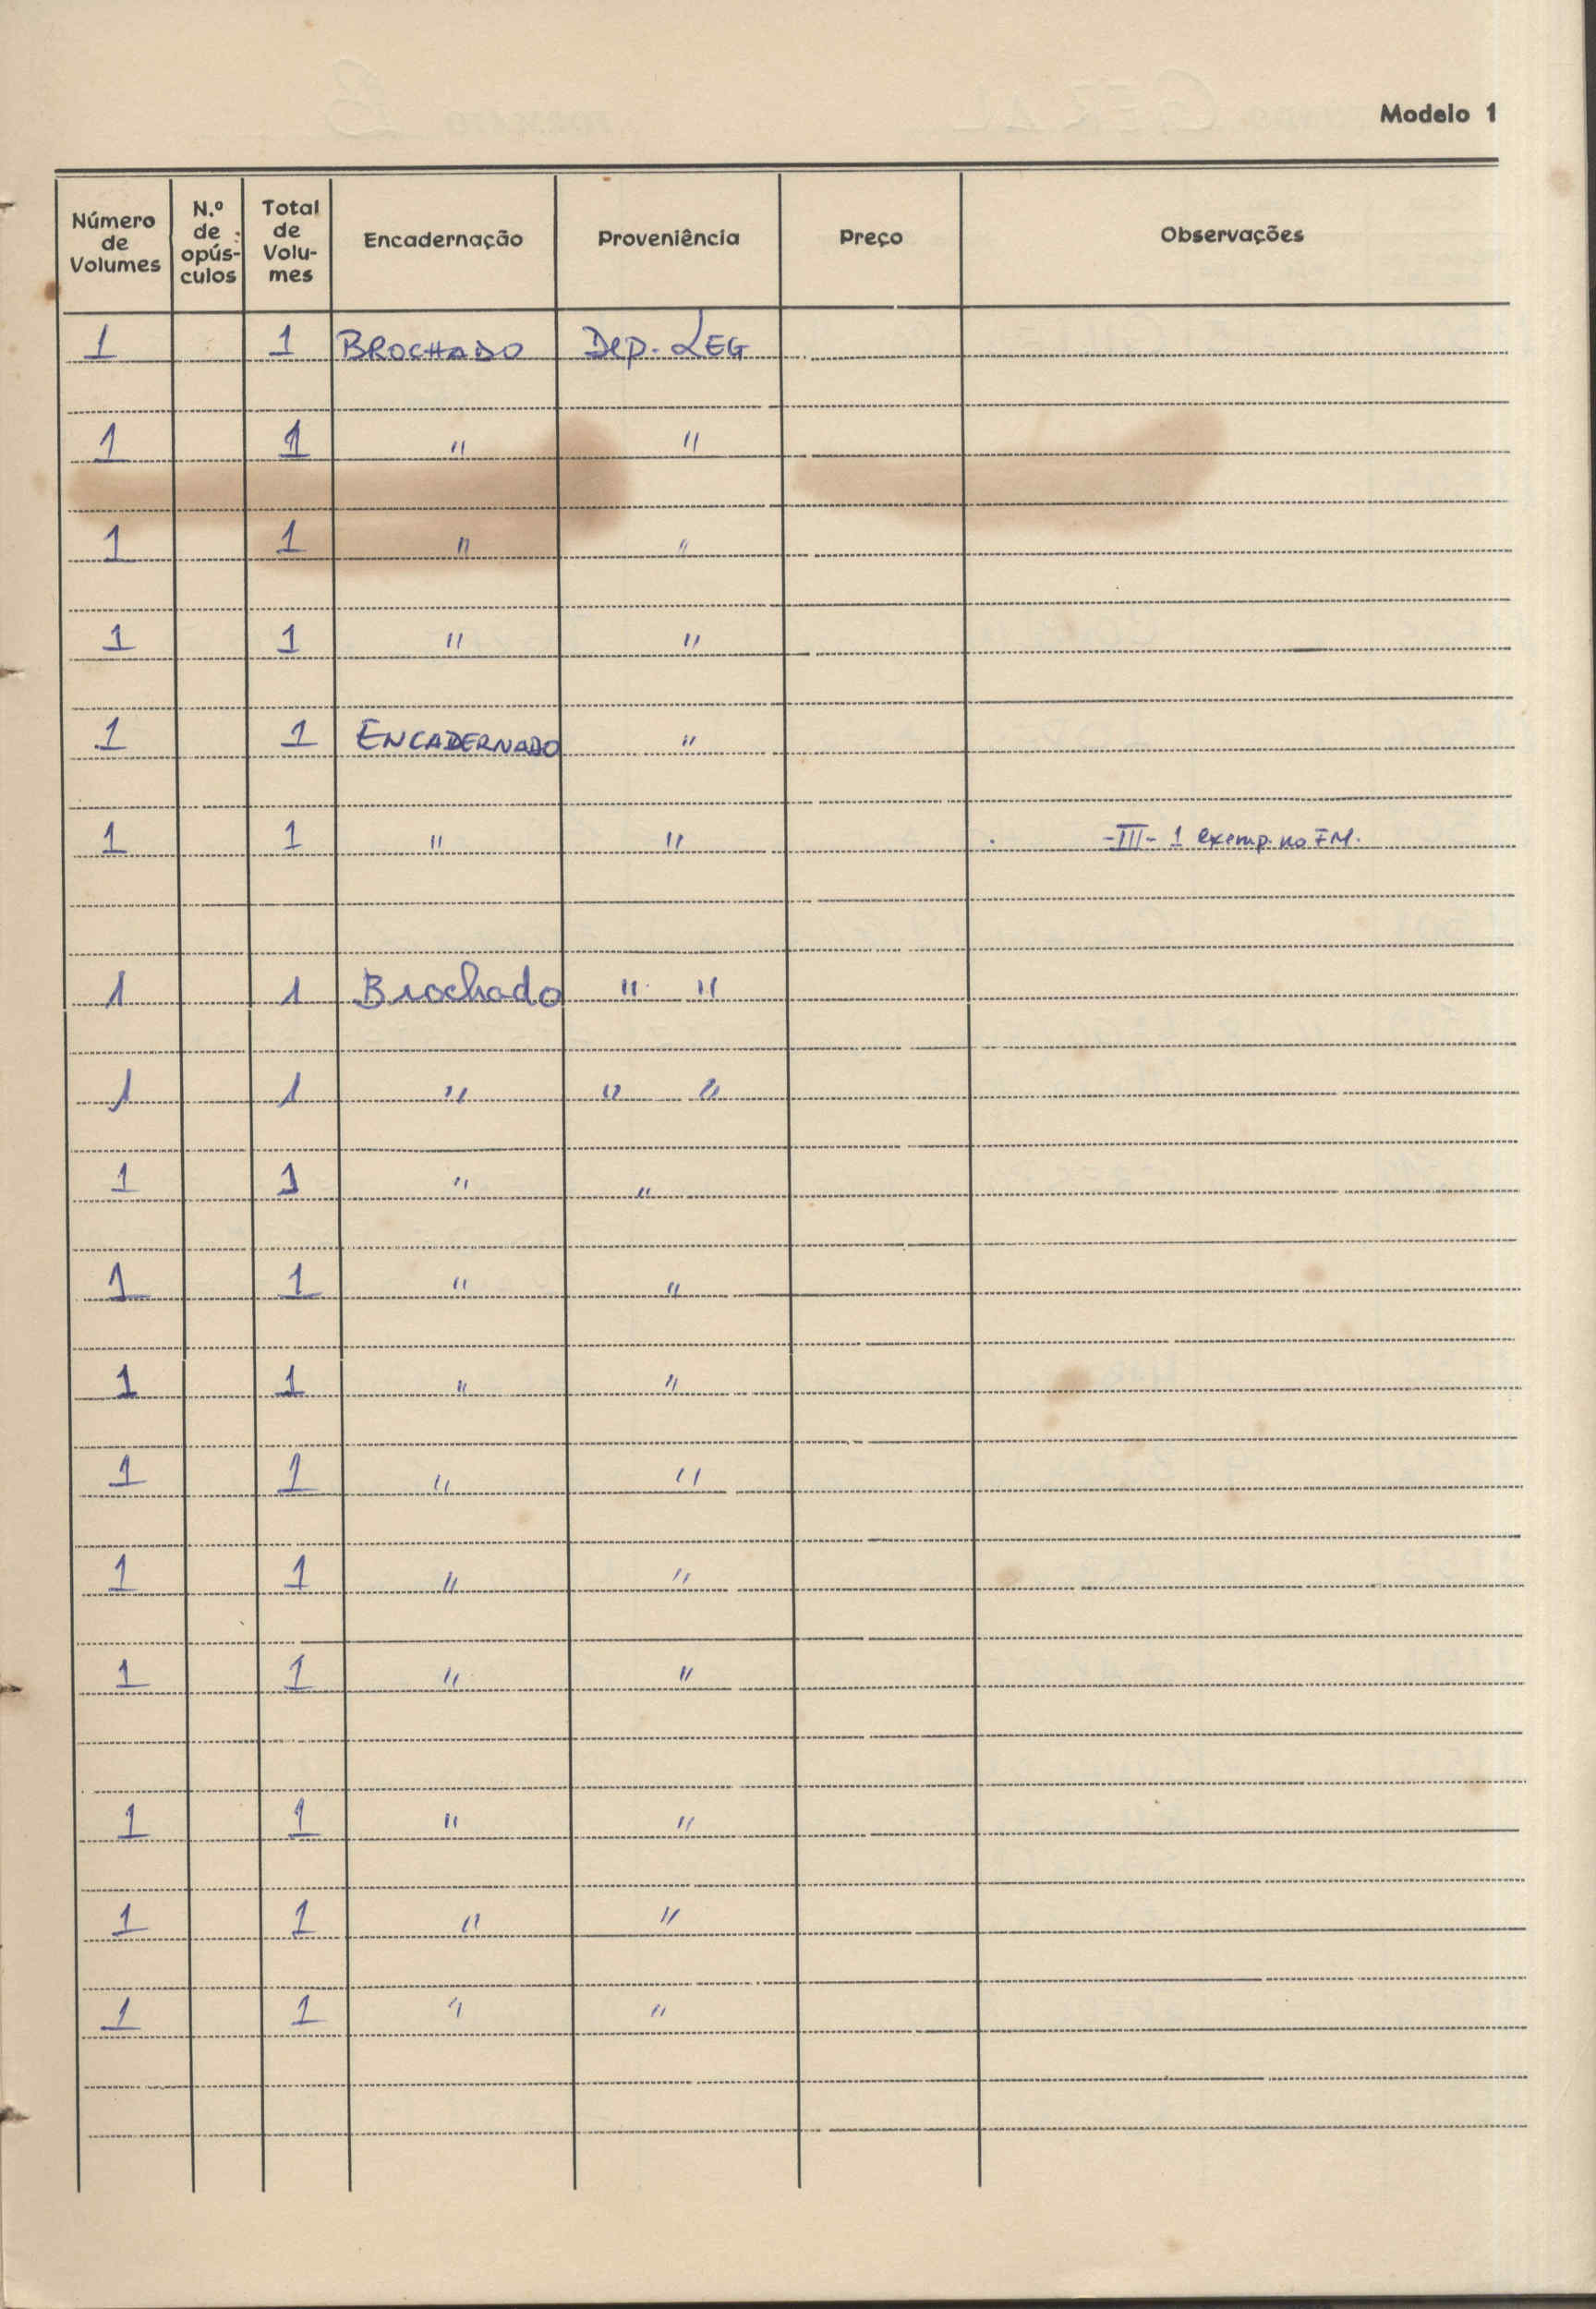 Modelo 1
Número de Volumes N.º de opús-culos Total de Volu-mes Encadernação Proveniência Preço Observações
1 1 BROCHADO Dep. LEG
1 1 " "
1 1 " "
1 1 " "
1 1 ENCADERNADO "
1 1 " " -III- 1 exemp. no FM.
1 1 Brochado " "
1 1 " " "
1 1 " "
1 1 " "
1 1 " "
1 1 " "
1 1 " "
1 1 " "
1 1 " "
1 1 " "
1 1 " "